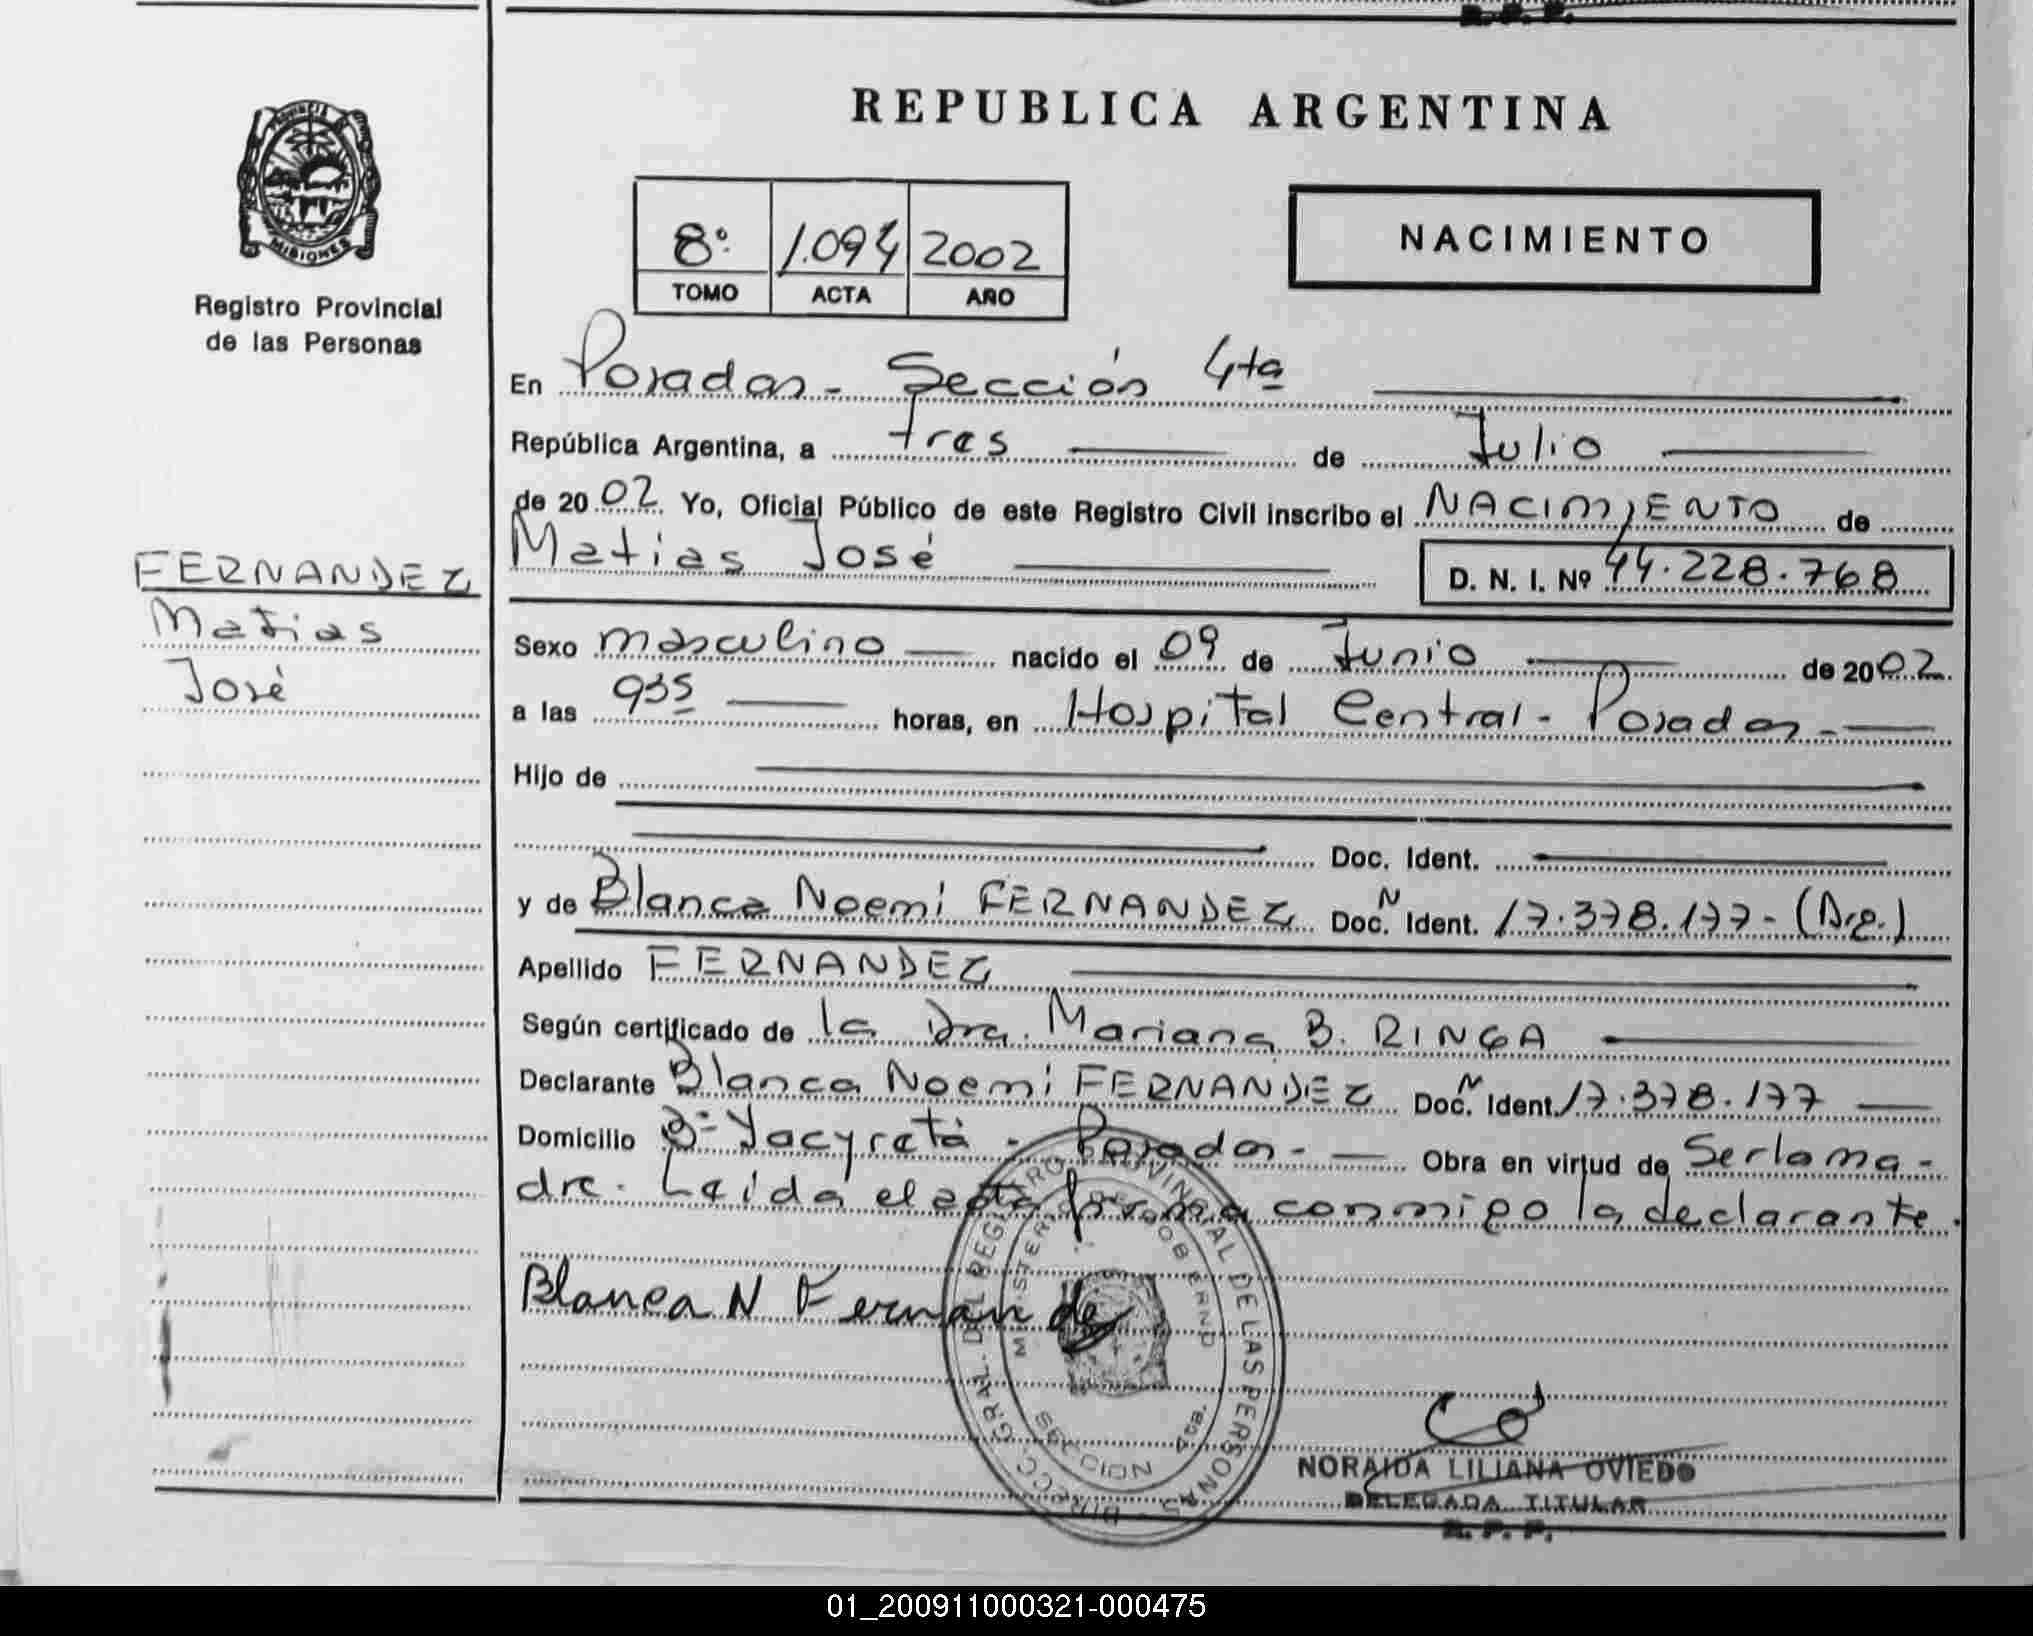 R. P. P.
REPUBLICA ARGENTINA
PROVINCIA DE
MISIONES
Registro Provincial
de las Personas
8º 1.094 2002
TOMO ACTA AÑO
NACIMIENTO
En Posadas - Sección 4ta
República Argentina, a tres de Julio
de 2002 Yo, Oficial Público de este Registro Civil inscribo el NACIMIENTO de
Matias José D. N. I. Nº 44.228.768
FERNANDEZ
Matias
José
Sexo masculino nacido el 09 de Junio de 2002
a las 935 horas, en Hospital Central - Posadas -
Hijo de
Doc. Ident.
y de Blanca Noemi FERNANDEZ Doc. N Ident. 17.378.177 - (Arg.)
Apellido FERNANDEZ
Según certificado de la Dra. Mariana B. RINGA
Declarante Blanca Noemi FERNANDEZ Doc. N Ident. 17.378.177
Domicilio Bº Yacyretá - Posadas - Obra en virtud de Ser la ma-
dre. Leida el acta firma conmigo la declarante.
Blanca N Fernandez
DIRECC. GRAL. DEL REGISTRO PROVINCIAL DE LAS PERSONAS
MINISTERIO DE GOBIERNO
NORAIDA LILIANA OVIEDO
DELEGADA TITULAR
R. P. P.
01_200911000321-000475